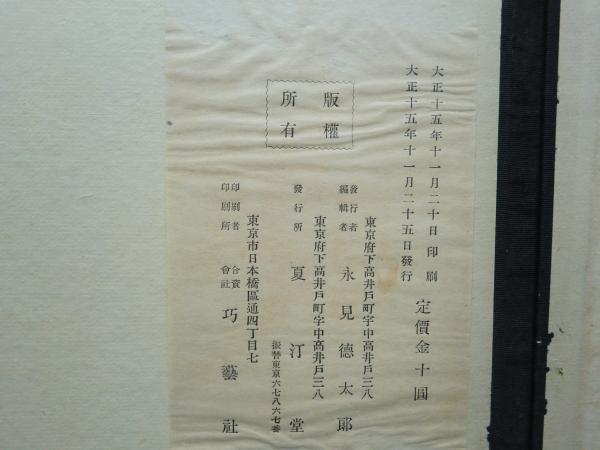 大正十五年十一月二十日印刷
大正十五年十一月二十五日發行
定價金十圓
版權
所有
東京府下高井戸町字中高井戸三八
發行者
編輯者
永見德太郎
東京府下高井戸町字中高井戸三八
發行所
夏汀堂
振替東京六七八六七番
東京市日本橋區通四丁目七
印刷者
印刷所
合資
會社
巧藝社